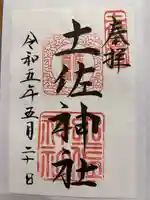 奉拝
土佐神社
令和五年五月二十日